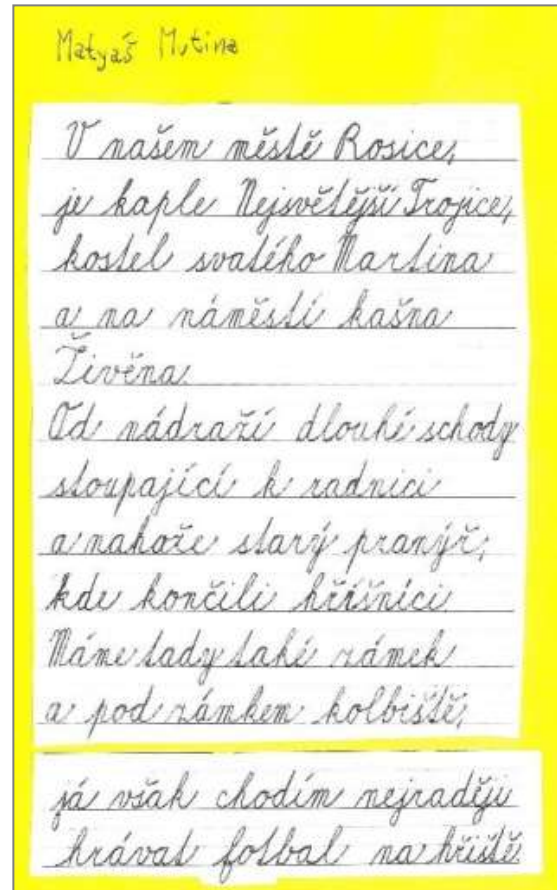 Matyáš Mutina
V našem městě Rosice,
je kaple Nejsvětější Trojice,
kostel svatého Martina
a na náměstí kašna
Živěna.
Od nádraží dlouhé schody
stoupající k radnici
a nahoře starý pranýř,
kde končili hříšníci
Máme tady také zámek
a pod zámkem kolbiště,
já však chodím nejraději
hrávat fotbal na hřiště.